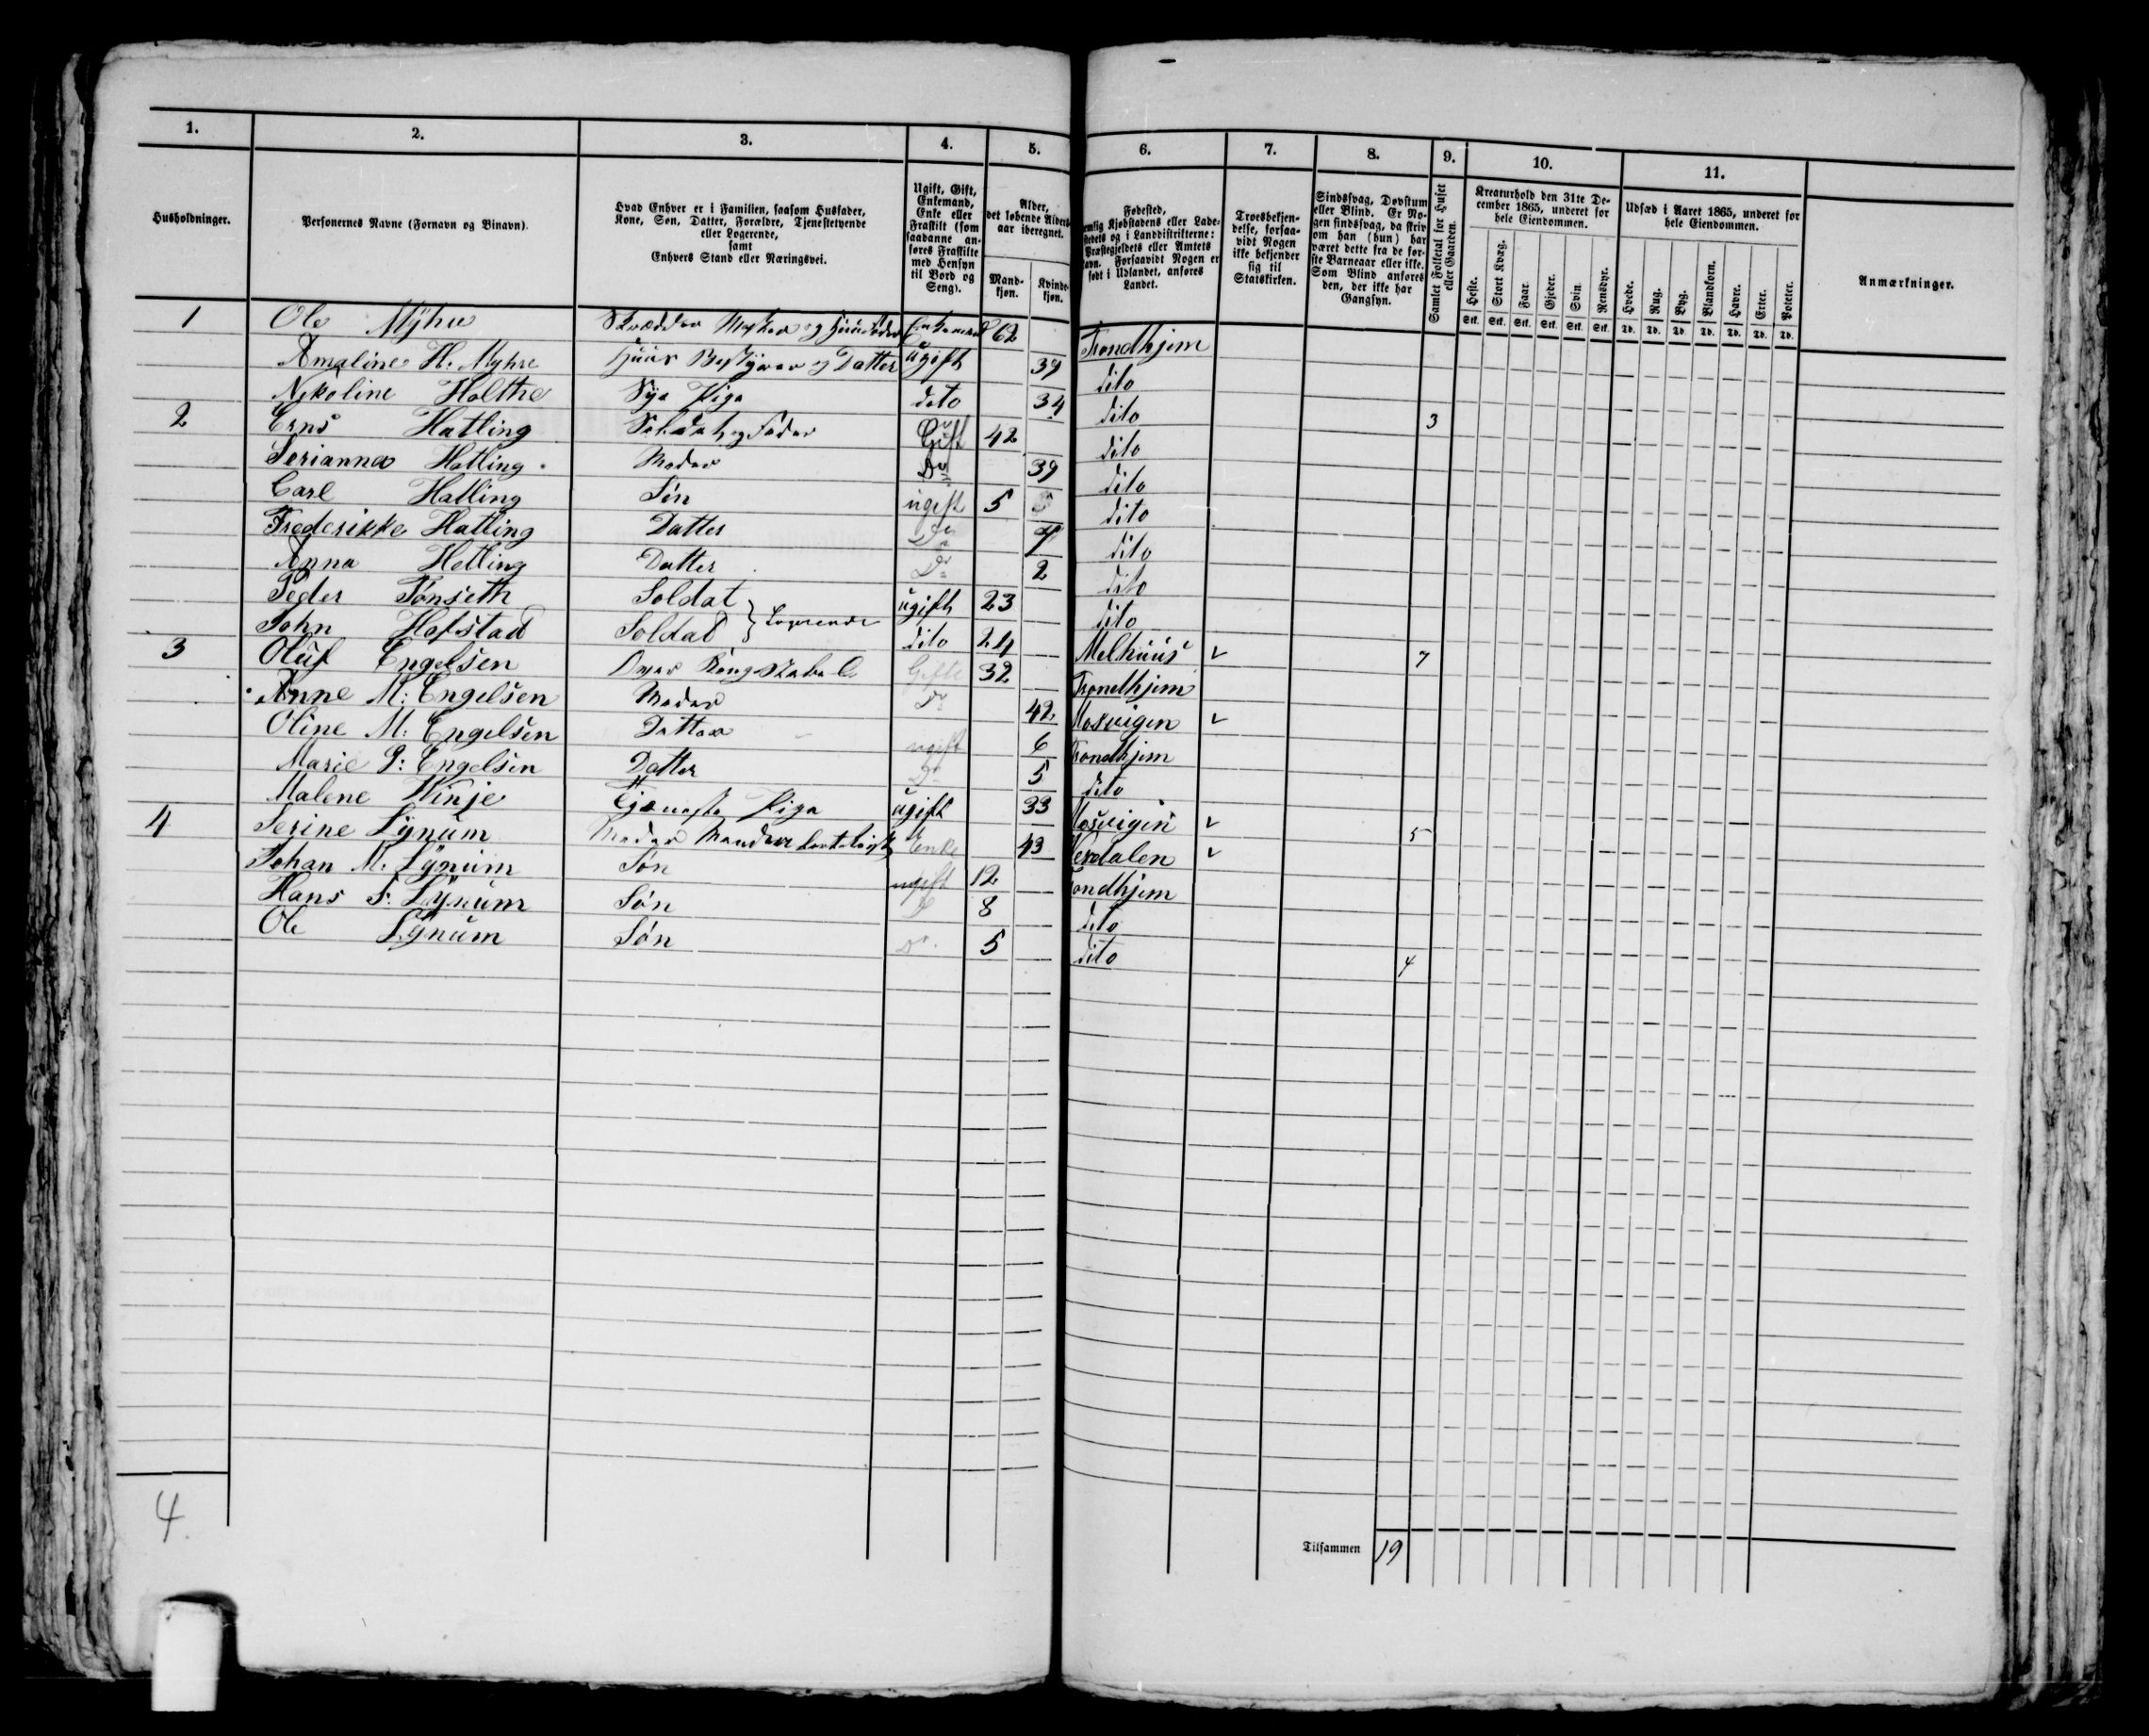 1. 2. 3. 4. 5. 6. 7. 8. 9. 10. 11.
Husholdninger.
Personernes Navne (Fornavn og Binavn).
Hvad Enhver er i Familien, saasom Husfader, Kone, Søn, Datter, Forældre, Tjenestetyende eller Logerende, samt Enhvers Stand eller Næringsvei.
Ugift, Gift, Enkemand, Enke eller Fraskilt (som saadanne anføres Fraskilte med Hensyn til Bord og Seng).
Alder, det løbende Alders-aar iberegnet.
Mand-kjøn. Kvinde-kjøn.
Fødested, nemlig Kjøbstadens eller Lade-stedets og i Landdistrikterne: Præstegjeldets eller Amtets Navn. Forsaavidt Nogen er født i Udlandet, anføres Landet.
Troesbekjen-delse, forsaa-vidt Nogen ikke bekjender sig til Statskirken.
Sindssvag, Døvstum eller Blind. Er No-gen sindssvag, da skriv om han (hun) har været dette fra de før-ste Barneaar eller ikke. Som Blind anføres den, der ikke har Gangsyn.
Samlet Folketal for Huset eller Gaarden.
Kreaturhold den 31te De-cember 1865, underet for hele Eiendommen.
Heste. Stort Kvæg. Faar. Gjeder. Svin. Rensdyr.
Stk. Stk. Stk. Stk. Stk. Stk.
Udsæd i Aaret 1865, underet for hele Eiendommen.
Hvede. Rug. Byg. Blandkorn. Havre. Erter. Poteter.
Td. Td. Td. Td. Td. Td. Td.
Anmærkninger.
1 Ole Myhre Skrædder Mester og Huusfader Enkemand 62 Trondhjem
Amaline H. Myhre Huus Bestyrer og Datter ugift 39 dito
Nikoline Holthe Sye Pige dito 34 dito 3
2 Erns Hatling Soldat og Fader Gift 42 dito
Serianna Hatling Moder Do 39 dito
Carl Hatling Søn ugift 5 dito
Frederikke Hatling Datter Do 7 dito
Anna Hatling Datter Do 2 dito
Peder Tønseth Soldat } Logerende ugift 23 dito
John Hofstad Soldat dito 24 Melhuus v 7
3 Oluf Engelsen Gifte 32 Trondhjem
Anne M: Engelsen Moder Do 42 Mosvigen v
Oline M: Engelsen Datter ugift 6 Trondhjem
Marie P: Engelsen Datter Do 5 dito
Malene Vinje Tjeneste Pige ugift 33 Mosvigen v 5
4 Serine Lynum Moder Enke 43 Verdalen v
Johan M. Lynum Søn ugift 12 Trondhjem
Hans Lynum Søn Do 8 dito
Ole Lynum Søn Do 5 dito 4
4.
Tilsammen 19